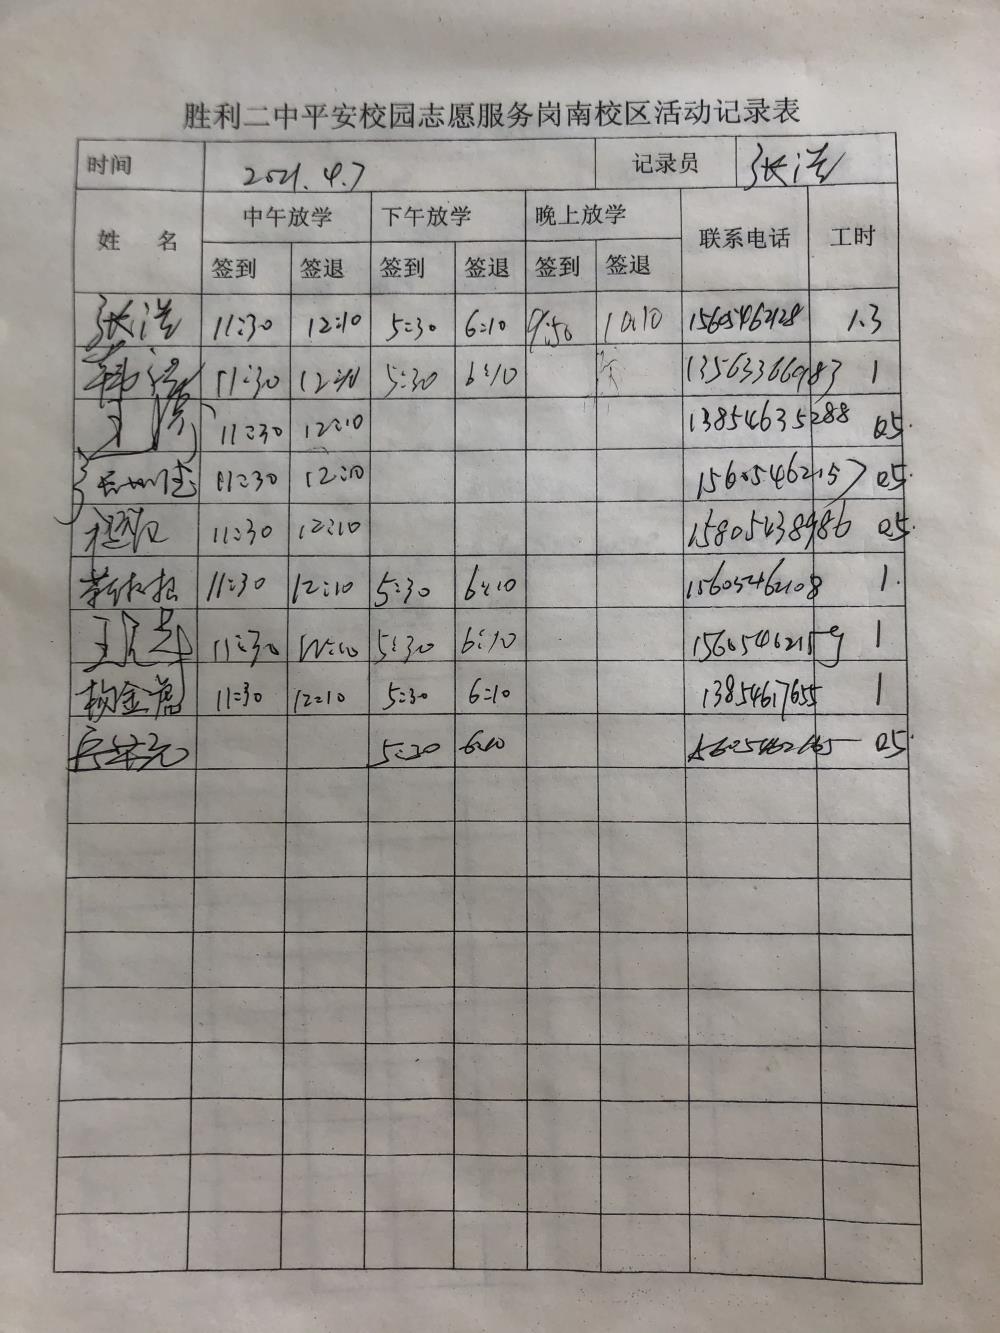 胜利二中平安校园志愿服务岗南校区活动记录表
时间 2021.4.7 记录员 张浩
姓 名 中午放学 下午放学 晚上放学 联系电话 工时
签到 签退 签到 签退 签到 签退
张浩 11:30 12:10 5:30 6:10 9:50 10:10 15605462128 1.3
11:30 12:10 5:30 6:10 13563366983 1
11:30 12:10 13854635288 0.5
11:30 12:10 15605462157 0.5
11:30 12:10 15805438986 0.5
11:30 12:10 5:30 6:10 15605462108 1
11:30 12:10 5:30 6:10 15605462159 1
杨金 11:30 12:10 5:30 6:10 13854617655 1
5:30 6:10 0.5